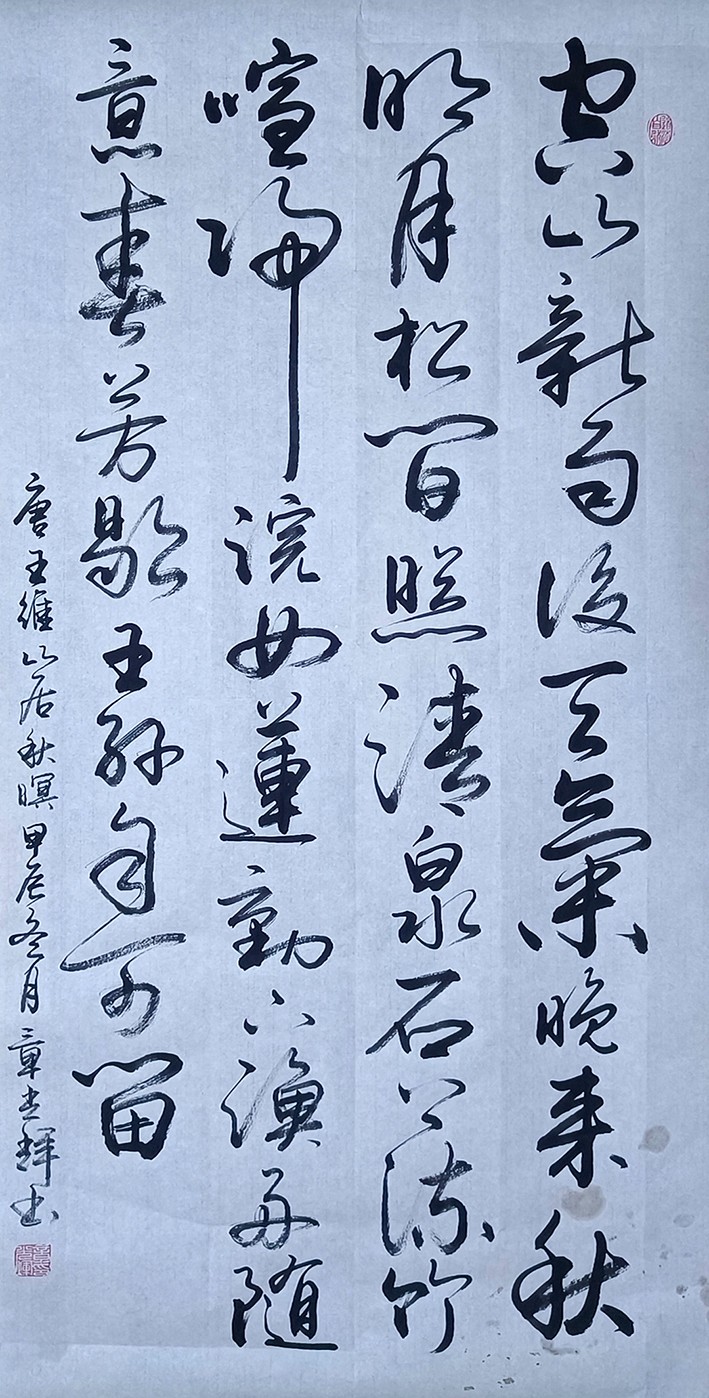 空山新雨後天氣晚来秋
明月松间照清泉石上流竹
喧归浣女蓮動下漁舟随
意春芳歇王孫自可留
唐王維山居秋暝甲辰冬月章輝书